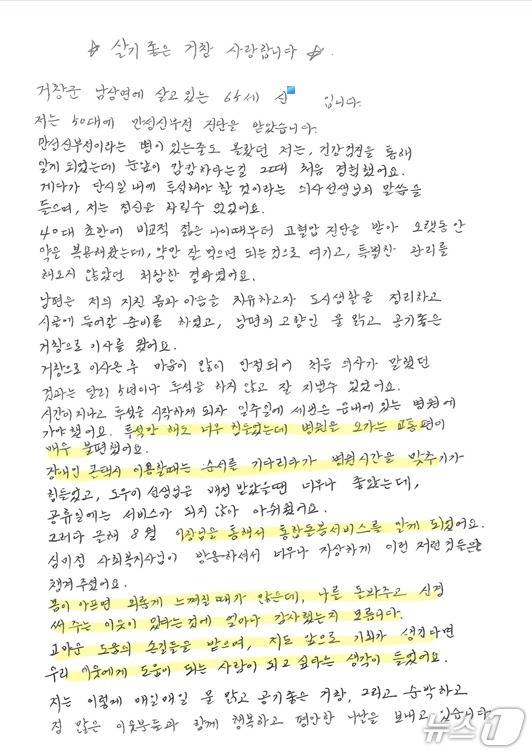 ☆ 살기 좋은 거창 사랑합니다 ☆.
거창군 남상면에 살고 있는 64세 신 입니다.
저는 50대에 만성신부전 진단을 받았습니다.
만성신부전이라는 병이 있는줄도 몰랐던 저는, 건강검진을 통해
알게 되었는데 눈앞이 캄캄하다는걸 그때 처음 경험했어요.
게다가 단시일 내에 투석해야 할 것이라는 의사선생님의 말씀을
들으며, 저는 정신을 차릴수 없었어요.
40대 초반에 비교적 젊은 나이때부터 고혈압 진단을 받아 오랫동안
약은 복용해왔는데, 약만 잘 먹으면 되는것으로 여기고, 특별한 관리를
해오지 않았던 처참한 결과였어요.
남편은 저의 지친 몸과 마음을 치유하고자 도시생활을 정리하고
시골에 들어갈 준비를 하였고, 남편의 고향인 물 맑고 공기좋은
거창으로 이사를 왔어요.
거창으로 이사온 후 마음이 많이 안정되어 처음 의사가 말했던
것과는 달리 5년이나 투석을 하지 않고 잘 지낼수 있었어요.
시간이 지나고 투석을 시작하게 되자 일주일에 세번은 읍내에 있는 병원에
가야했어요. 투석만 해도 너무 힘들었는데 병원을 오가는 교통편이
매우 불편했어요.
장애인 콜택시 이용할때는 순서를 기다리다가 병원시간을 맞추기가
힘들었고, 도우미 선생님은 배정 받았을땐 너무나 좋았는데,
공휴일에는 서비스가 되지 않아 아쉬웠어요.
그러다 올해 8월 이장님을 통해서 통합돌봄서비스를 알게 되었어요.
심이정 사회복지사님이 방문하셔서 너무나 자상하게 이런 저런것들은
챙겨 주셨어요.
몸이 아프면 외롭게 느껴질때가 많은데, 나를 돌봐주고 신경
써 주는 이웃이 있다는것에 얼마나 감사했는지 모릅니다.
고마운 도움의 손길들을 받으며, 저도 앞으로 기회가 생긴다면
우리 이웃에게 도움이 되는 사람이 되고 싶다는 생각이 들었어요.
저는 이렇게 매일매일 물 맑고 공기좋은 거창, 그리고 순박하고
정 많은 이웃분들과 함께 행복하고 평안한 나날을 보내고 있습니다
뉴스1